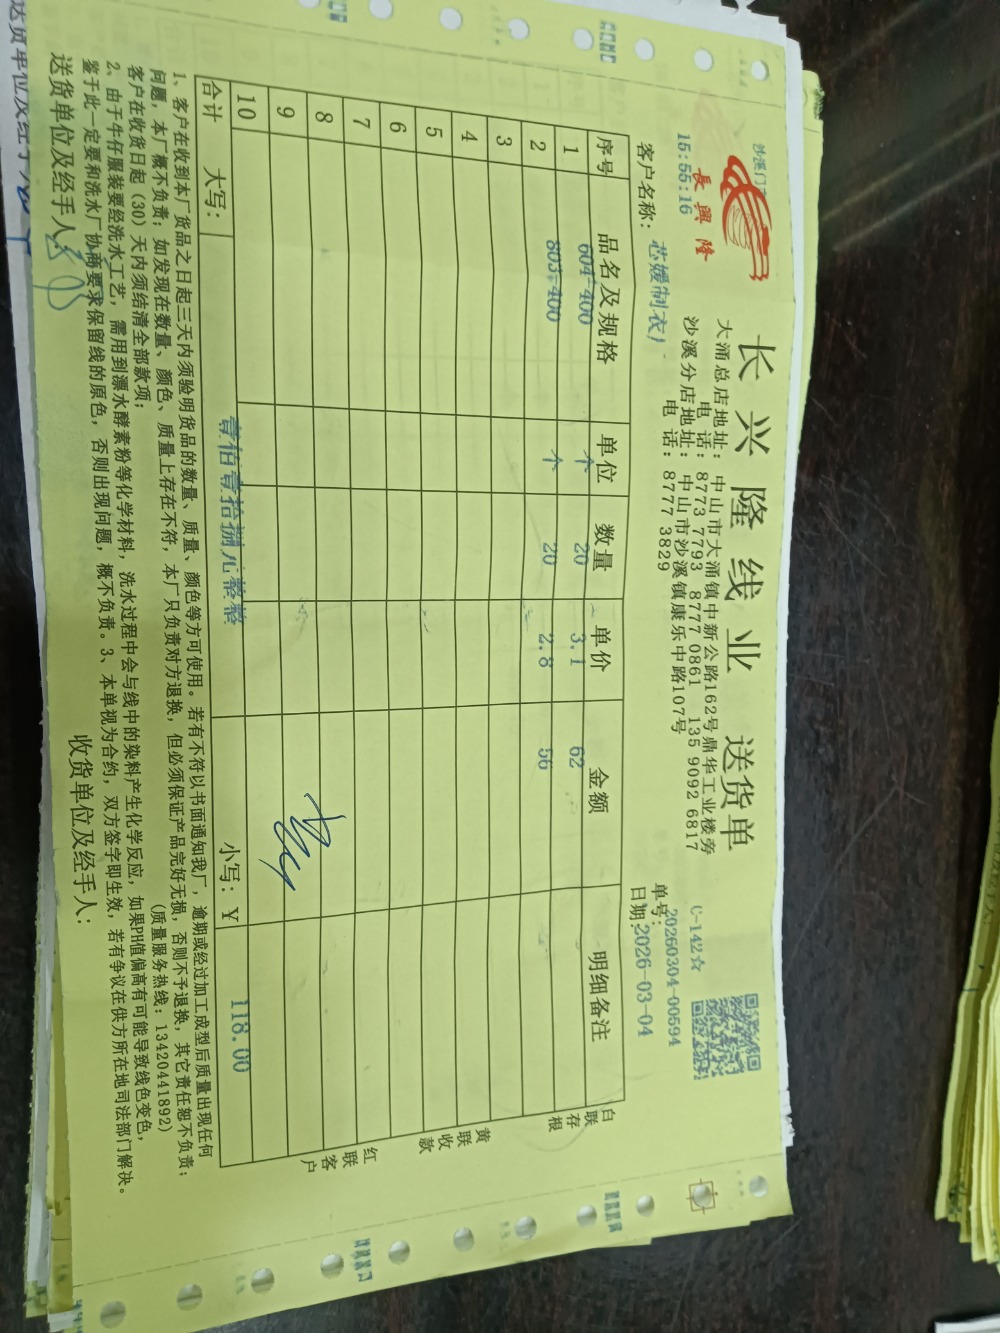 長興隆
长兴隆线业 送货单
沙溪门
15:55:16
大涌总店地址: 中山市大涌镇中新公路162号鼎华工业楼旁
电 话: 8773 7793 8777 0861 135 9092 6817
沙溪分店地址: 中山市沙溪镇康乐中路107号
电 话: 8777 3829
C-142☆
单号: 20260304-00594
日期: 2026-03-04
客户名称: 芯媛制衣厂
序号 品名及规格 单位 数量 单价 金额 明细备注
1 604-400 个 20 3.1 62
2 803-400 个 20 2.8 56
3
4
5
6
7
8
9
10
合计 大写: 壹佰壹拾捌元整整 小写: ¥ 118.00
白联存根
黄联收款
红联客户
1、客户在收到本厂货品之日起三天内须验明货品的数量、质量、颜色等方可使用。若有不符以书面通知我厂，逾期或经过加工成型后质量出现任何
问题，本厂概不负责；如发现在数量、颜色、质量上存在不符，本厂只负责对方退换，但必须保证产品完好无损，否则不予退换，其它责任恕不负责；
客户在收货日起（30）天内须结清全部款项； （质量服务热线：13420441892）
2、由于牛仔服装要经洗水工艺，需用到漂水酵素粉等化学材料，洗水过程中会与线中的染料产生化学反应，如果PH值偏高有可能导致线色变色，
鉴于此一定要和洗水厂协商要求保留线的原色，否则出现问题，概不负责。3、本单视为合约，双方签字即生效，若有争议在供方所在地司法部门解决。
送货单位及经手人: 收货单位及经手人:
送货单位及经手人